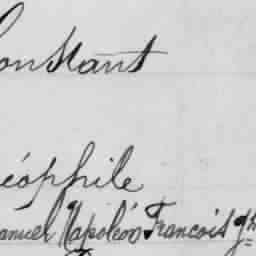 Constant
éophile
anuel Napoléon Francois gh